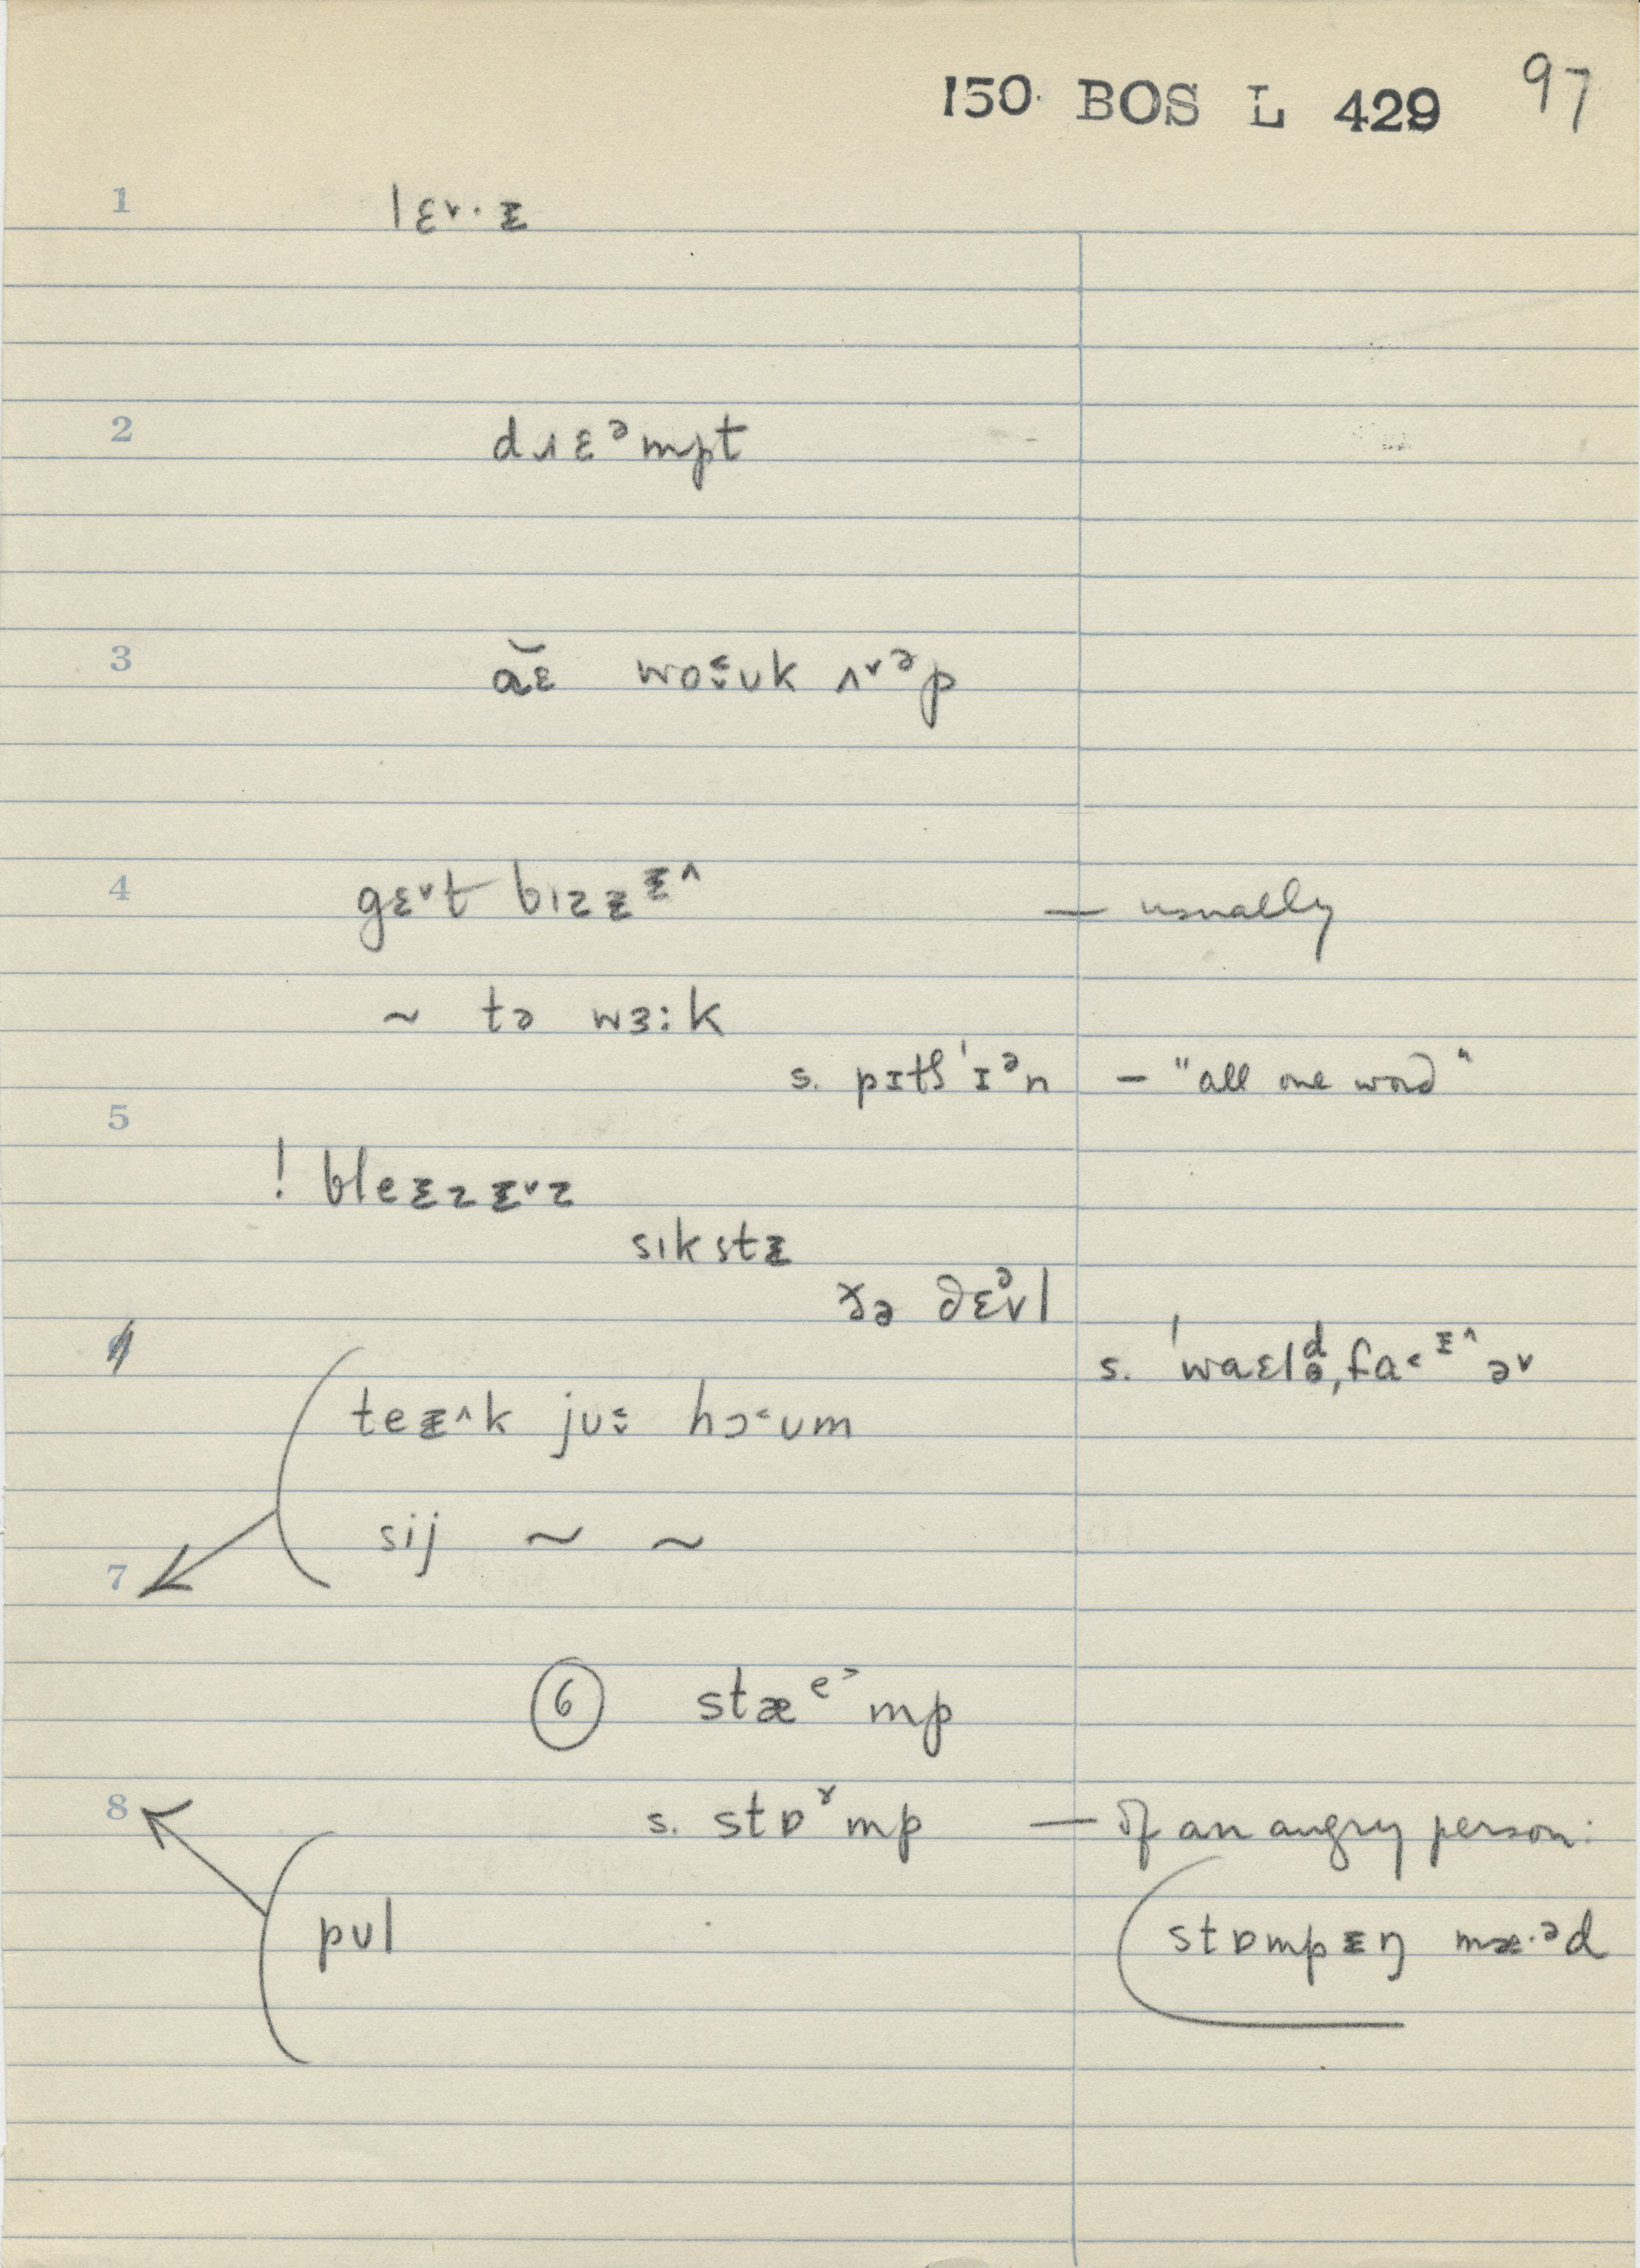 150 BOS L 429 97
1 lɛ˅·ᵻ
2 dɹɛᵊmpt
3 ɑ̆ɛ wo˂ːʊk ʌ˅ᵊp
4 gɛ˅t bɪzᵻᵻ^ — usually
~ tə wɜːk
s. pɪtʃ'ɪᵊn — "all one word"
5
! bleᵻzᵻ˅z
sɪkstᵻ
ðə dɛᵊvl
s. 'waɛlᵈə,fa˂ᶤ^ə˅
teᵻ^k juː hɔ˂ʊm
sij ~ ~
7
6 stæᵉ˃mp
8 s. stɒˠmp — of an angry person:
pʊl
stɒmpᵻŋ mæ·ᵊd